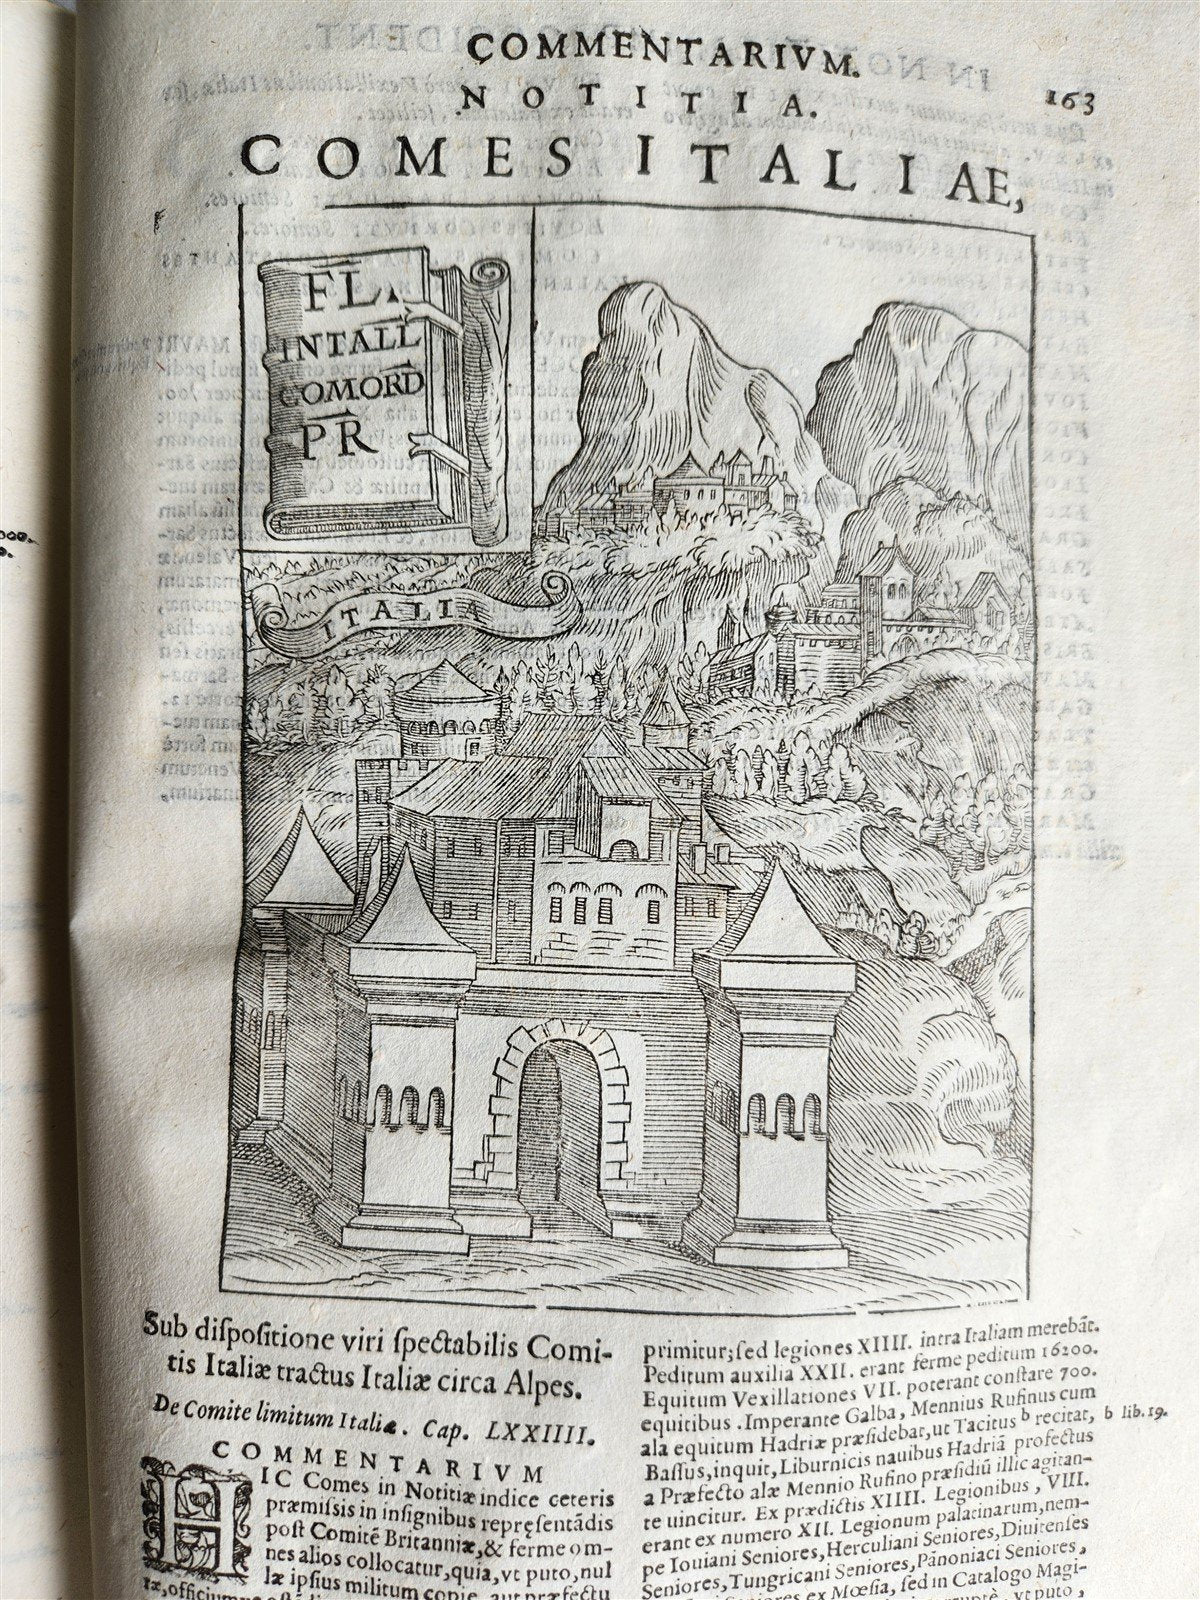 COMMENTARIVM.
NOTITIA.
163
COMES ITALIAE,
FL.
INTALL
COMORD
PR
ITALIA
Sub diſpoſitione viri ſpectabilis Comi-
tis Italiæ tractus Italiæ circa Alpes.
De Comite limitum Italiæ. Cap. LXXIIII.
COMMENTARIVM
HIC Comes in Notitiæ indice ceteris
præmiſsis in inſignibus repręſentādis
poſt Comitē Britanniæ, & ferme om-
nes alios collocatur, quia, vt puto, nul
læ ipſius militum copię, aut præfectu
ræ, officiumque
primitur; ſed legiones XIIII. intra Italiam merebāt.
Peditum auxilia XXII. erant ferme peditum 16200.
Equitum Vexillationes VII. poterant conſtare 700.
equitibus. Imperante Galba, Mennius Rufinus cum
ala equitum Hadriæ præſidebat, ut Tacitus b recitat,
b lib. 19.
Baſſus, inquit, Liburnicis nauibus Hadriā profectus
a Præfecto alæ Mennio Rufino præſidiū illic agitan-
te uincitur. Ex prædictis XIIII. Legionibus, VIII.
erant ex numero XII. Legionum palatinarum, nem-
pe Iouiani Seniores, Herculiani Seniores, Diuitenſes
Seniores, Tungricani Seniores, Pānoniaci Seniores,
Seniores ex Mœſia, ſed in Catalogo Magi-
vt puto,